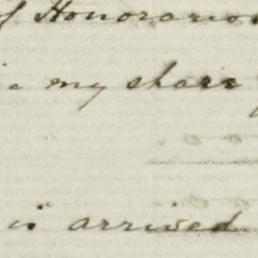 of Honorarium
my share
is arrived